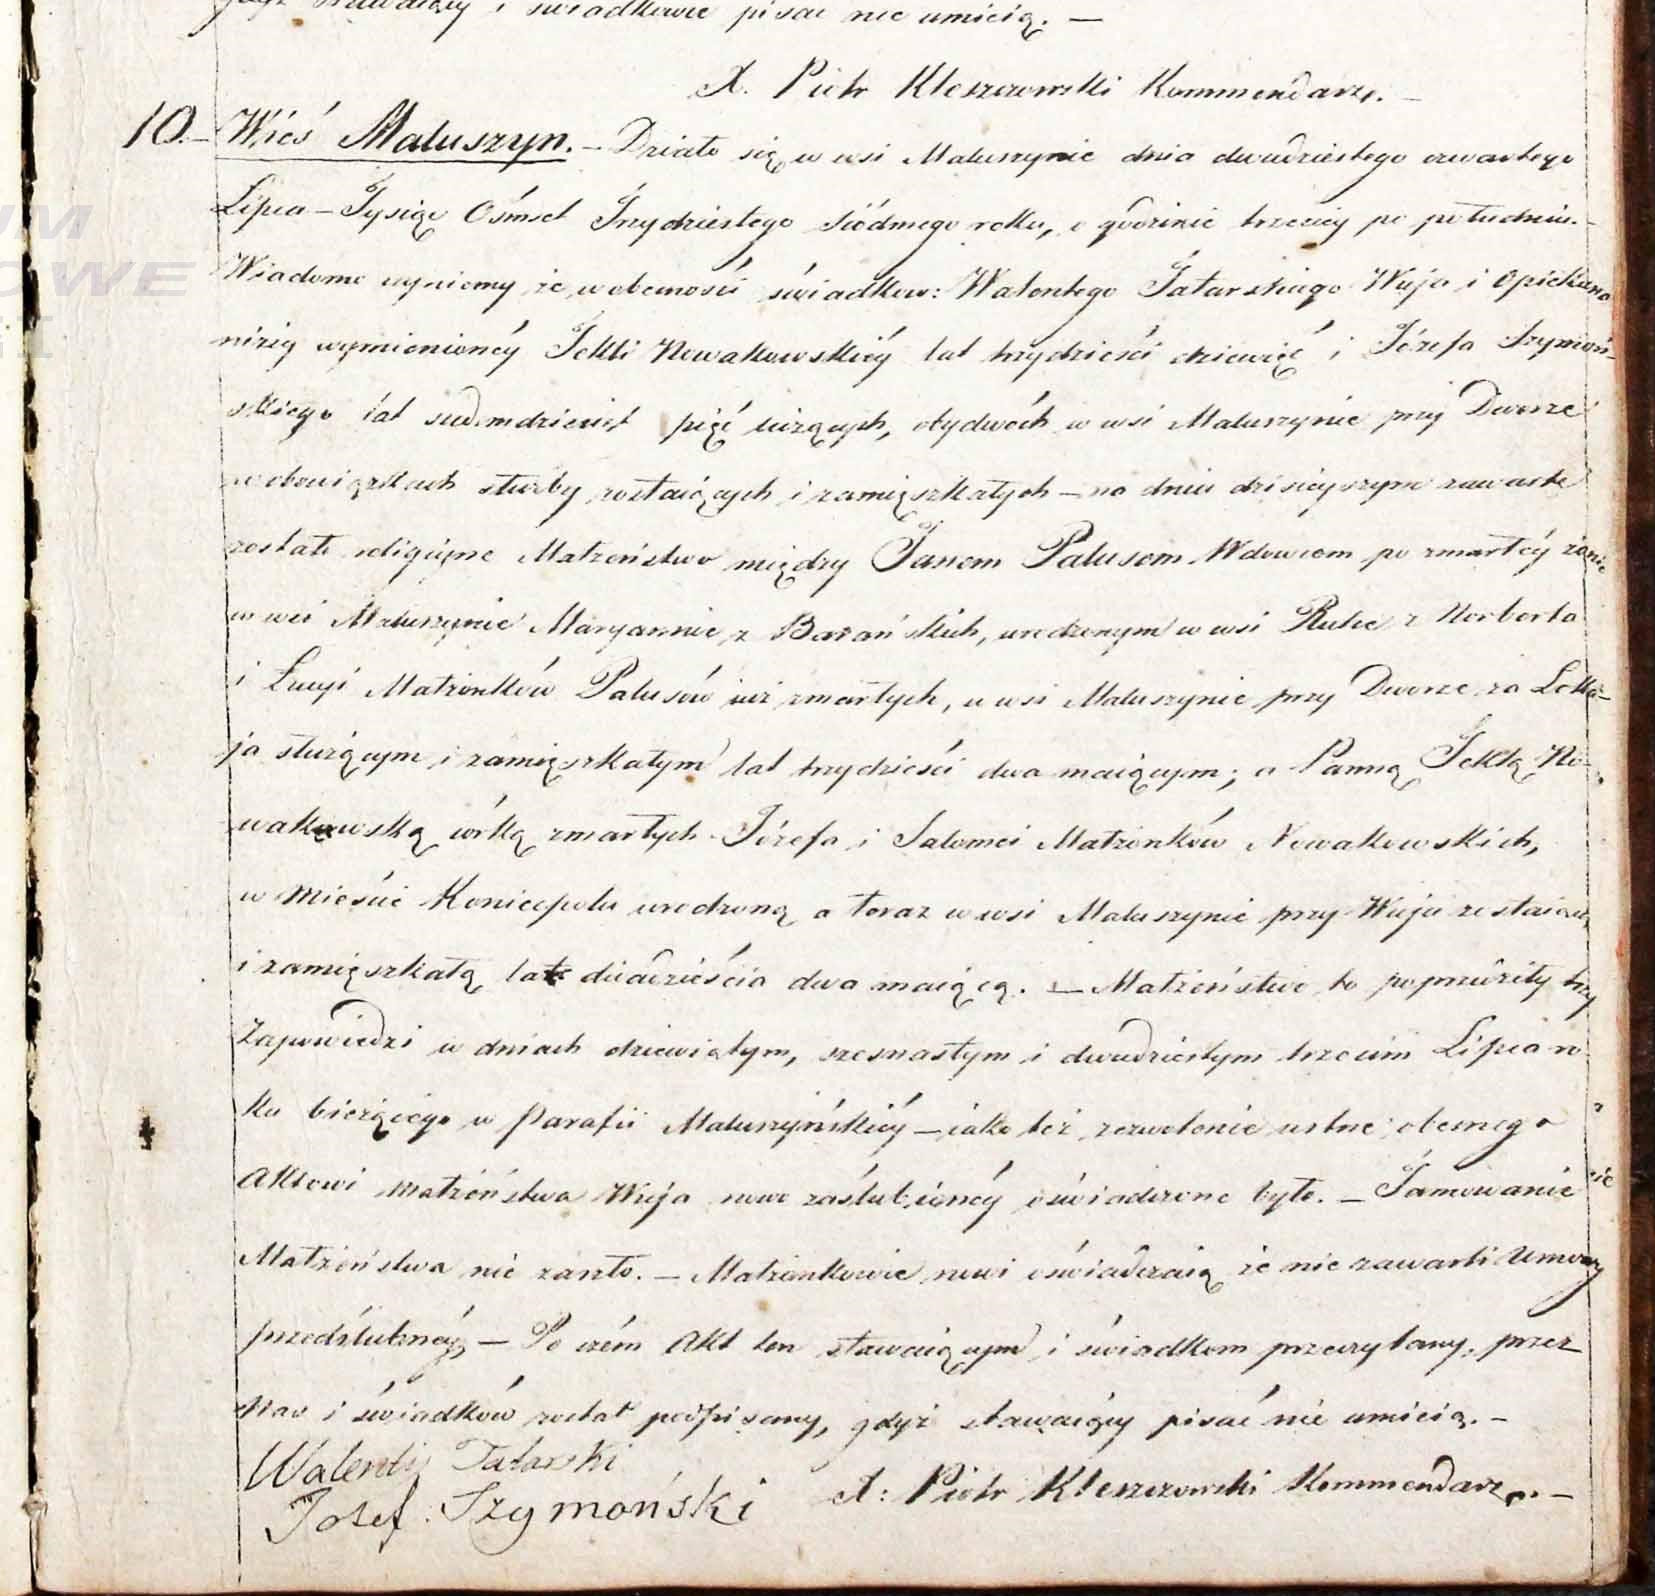 stawaiący i świadkowie pisać nie umieią. —
X. Piotr Kleszczowski Kommendarz. —
10. — Wieś Maluszyn. — Działo się w wsi Maluszynie dnia dwudziestego czwartego
Lipca — Tysiąc Ośmset Trzydziestego siódmego roku, o godzinie trzeciey po południu. —
Wiadomo czyniemy że w obecności świadkow: Walentego Tatarskiego Wuja i Opiekuna
niżey wymienioney Tekli Nowakowskiéy lat trzydzieści dziewięć i Józefa Szymoń-
skiego lat siedmdziesiąt pięć liczących, obydwóch w wsi Maluszynie przy Dworze
w obowiązkach służby zostaiących i zamięszkałych — na dniu dzisieyszym zawarte
zostało religijne Małżeństwo między Janem Palusem Wdowcem po zmarłéy żonie
w wsi Maluszynie Maryannie z Barańskich, urodzonym w wsi Rudce z Norberta
i Łucyi Małżonków Palusów iuż zmarłych, w wsi Maluszynie przy Dworze za Loka-
ja służącym i zamięszkałym lat trzydzieści dwa maiącym; a Panną Teklą No-
wakowską córką zmarłych Józefa i Salomei Małżonków Nowakowskich,
w Mieście Koniecpolu urodzoną a teraz w wsi Maluszynie przy Wuju zostaiącą
i zamięszkałą lat dwadzieścia dwa maiącą. — Małżeństwo to poprzedziły trzy
Zapowiedzi w dniach dziewiątym, szesnastym i dwudziestym trzecim Lipca ro-
ku bieżącego w Parafii Maluszyńskiéy — iako też zezwolenie ustne obecnego
Aktowi Małżeństwa Wuja nowo zaślubionéy oświadczone było. — Tamowanie
Małżeństwa nie zaszło. — Małżonkowie nowi oświadczaią że nie zawarli Umowy
przedślubnéy — Po czém Akt ten stawaiącym i świadkom przeczytany, przez
Nas i świadków został podpisany, gdyż stawaiący pisać nie umieią. —
Walenty Tatarski
Josef Szymoński X: Piotr Kleszczowski Kommendarz. —